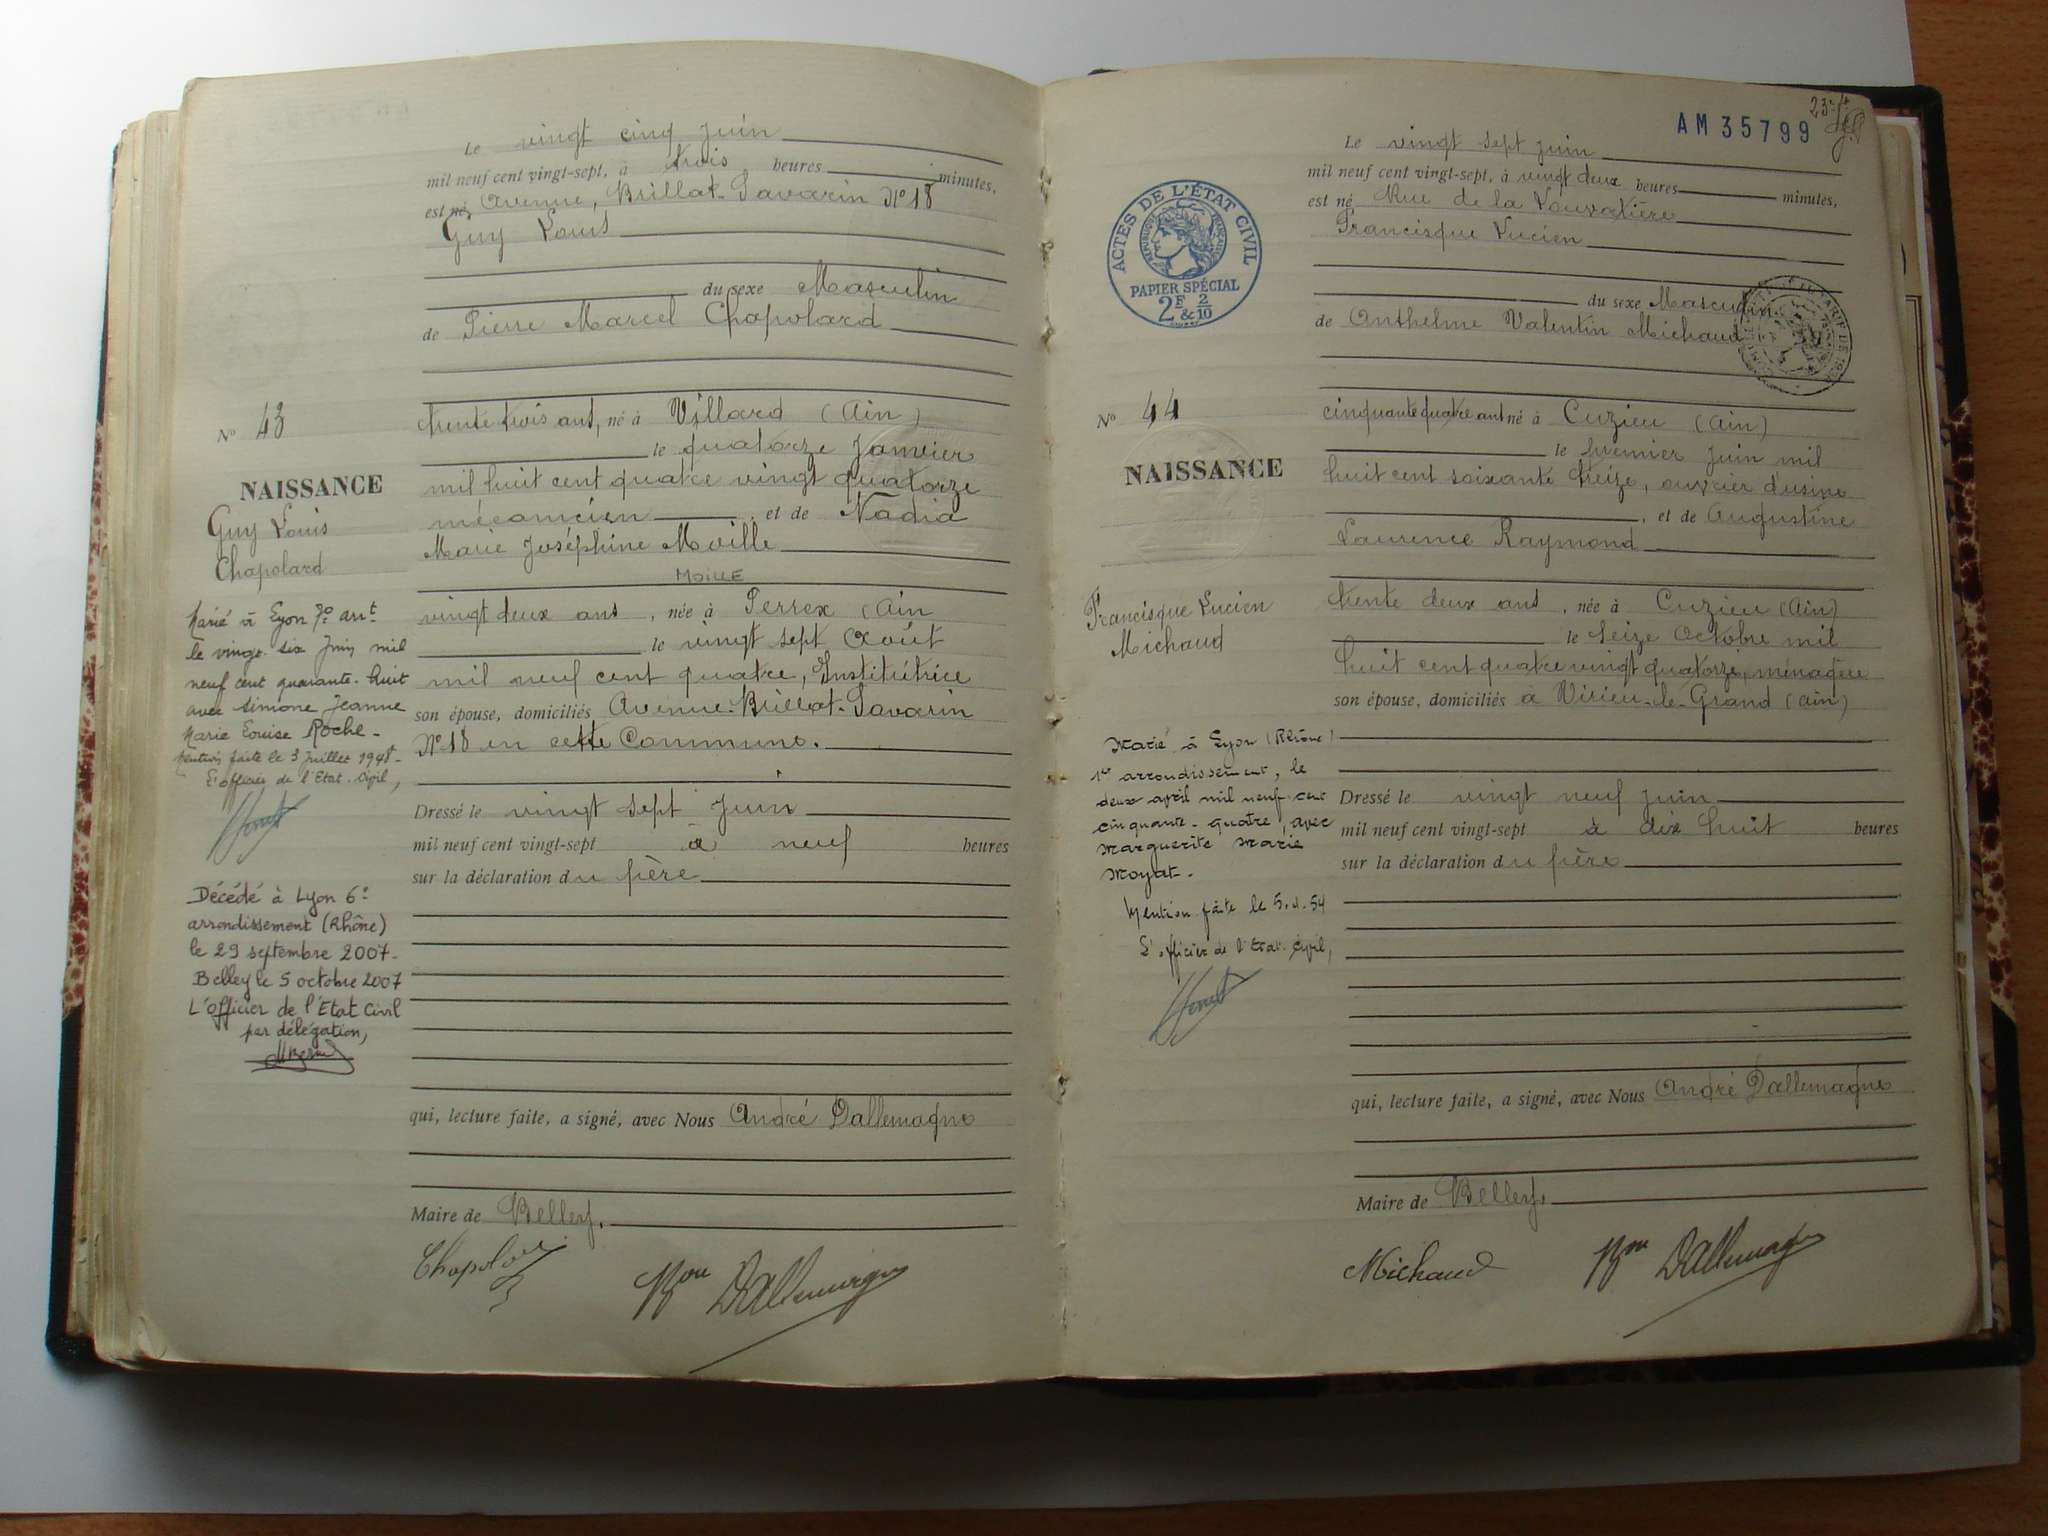 Le vingt cinq juin
mil neuf cent vingt-sept, à trois heures minutes,
est né, Avenue, Brillat-Savarin N° 18
Guy Louis
du sexe Masculin
de Pierre Marcel Chapolard
N° 43
trente trois ans, né à Villard (Ain)
le quatorze Janvier
mil huit cent quatre vingt quatorze
NAISSANCE
mécanicien, et de Nadia
Guy Louis
Chapolard
Marie Joséphine Moille
MOILLE
vingt deux ans, née à Perrex (Ain
le vingt sept Août
mil neuf cent quatre, Institutrice
son épouse, domiciliés Avenue-Brillat-Savarin
N° 18 en cette Commune.
Marié à Lyon 7e arrt
le vingt-six Juin mil
neuf cent quarante-huit
avec Simone Jeanne
Marie Louise Roche-
Mention faite le 3 juillet 1948-
L'officier de l'Etat-Civil,
Dressé le vingt sept Juin
mil neuf cent vingt-sept à neuf heures
sur la déclaration du père
Décédé à Lyon 6e
arrondissement (Rhône)
le 29 septembre 2007-
Belley le 5 octobre 2007
L'officier de l'Etat Civil
par délégation,
qui, lecture faite, a signé, avec Nous André Dallemagne
Maire de Belley.
Chapolard
Bon Dallemagne
AM 35799
23e
Le vingt sept juin
mil neuf cent vingt-sept, à vingt deux heures minutes,
est né Rue de la
Francisque Lucien
ACTES DE L'ÉTAT CIVIL
RÉPUBLIQUE FRANÇAISE
PAPIER SPÉCIAL
2F & 2/10
du sexe Masculin
de Anthelme Valentin Michaud
N° 44
cinquante quatre ans né à Cuzieu (Ain)
le premier Juin mil
huit cent soixante treize, ouvrier d'usine
NAISSANCE
, et de Augustine
Laurence Raymond
Francisque Lucien
Michaud
trente deux ans, née à Cuzieu (Ain)
le seize Octobre mil
huit cent quatre vingt quatorze, ménagère
son épouse, domiciliés à Virieu-le-Grand (Ain)
Marié à Lyon (Rhône)
1er arrondissement, le
deux avril mil neuf cent
cinquante-quatre, avec
Marguerite Marie
Moyat-
Mention faite le 5.4.54
L'officier de l'Etat-Civil,
Dressé le vingt neuf juin
mil neuf cent vingt-sept à dix huit heures
sur la déclaration du père
qui, lecture faite, a signé, avec Nous André Dallemagne
Maire de Belley.
Michaud
Bon Dallemagne